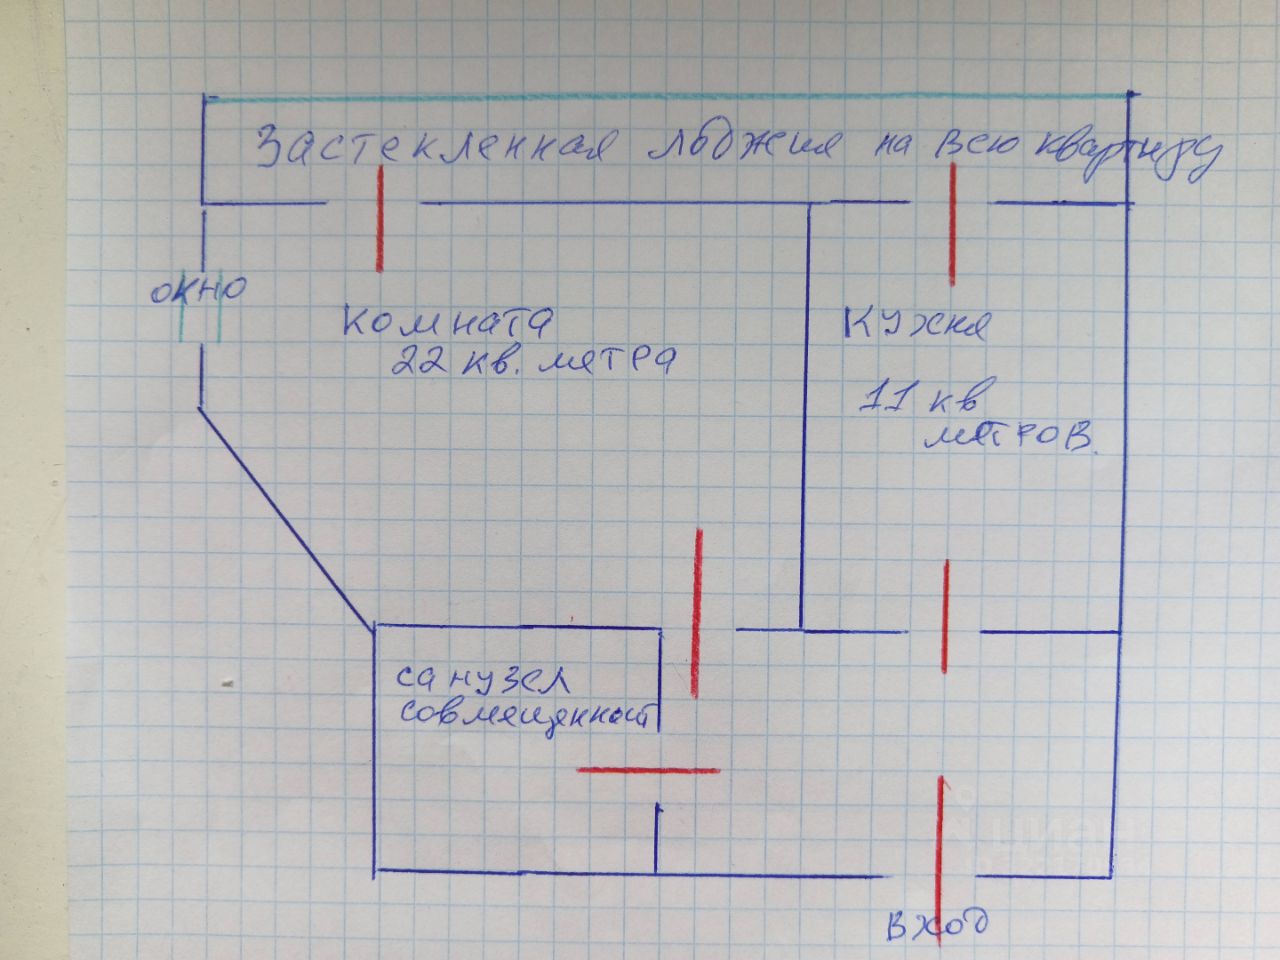 Застекленная лоджия на всю квартиру
окно
Комната
22 кв. метра
Кухня
11 кв
метров.
санузел
совмещенный
циан
вход